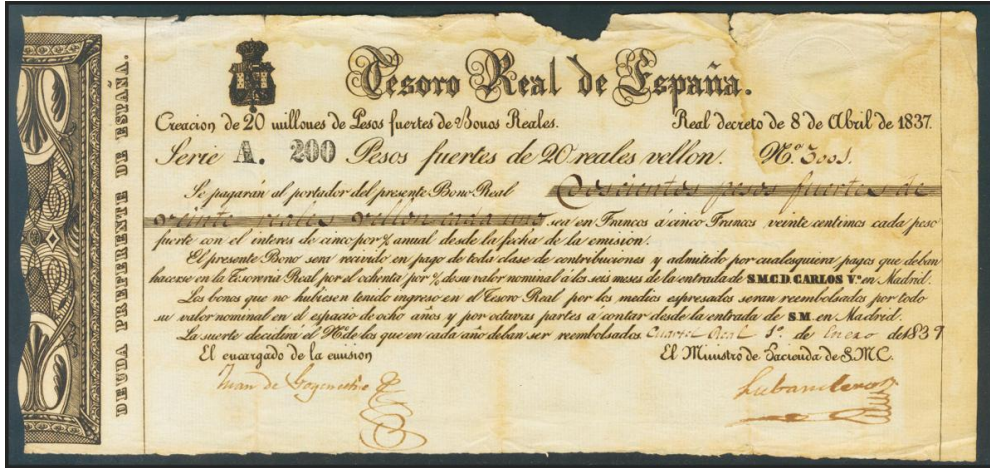 DEUDA PREFERENTE DE ESPAÑA.
Tesoro Real de España.
Creacion de 20 millones de Pesos fuertes de Bonos Reales. Real decreto de 8 de Abril de 1837.
Serie A. 200 Pesos fuertes de 20 reales vellon. Nº 3001.
Se pagarán al portador del presente Bono Real Doscientos pesos fuertes de
veinte reales vellon cada uno sea en Francos á cinco Francos veinte centimos cada peso
fuerte con el interes de cinco por % anual desde la fecha de la emision.
El presente Bono sera recivido en pago de toda clase de contribuciones y admitido por cualesquiera pagos que deban
hacerse en la Tesoreria Real por el ochenta por % de su valor nominal á los seis meses de la entrada de S.M.C.D. CARLOS Vº en Madrid.
Los bonos que no hubiesen tenido ingreso en el Tesoro Real por los medios espresados seran reembolsados por todo
su valor nominal en el espacio de ocho años y por octavas partes a contar desde la entrada de S.M. en Madrid.
La suerte decidirá el Nº de los que en cada año deban ser reembolsados. Cuartel Real 1º de Enero de 1837
El encargado de la emision El Ministro de Hacienda de S.M.C.
Juan de
Labandero